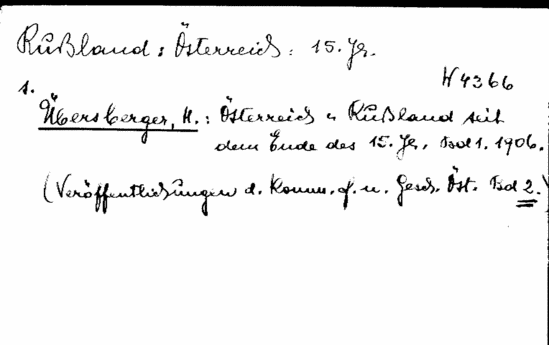 Rußland : Österreich : 15. Jh.
H 4366
1.
Übersberger, H. : Österreich u Rußland seit
dem Ende des 15. Jh. Bd 1. 1906.
(Veröffentlichungen d. Komm. f. n. Gesch. Öst. Bd 2.)